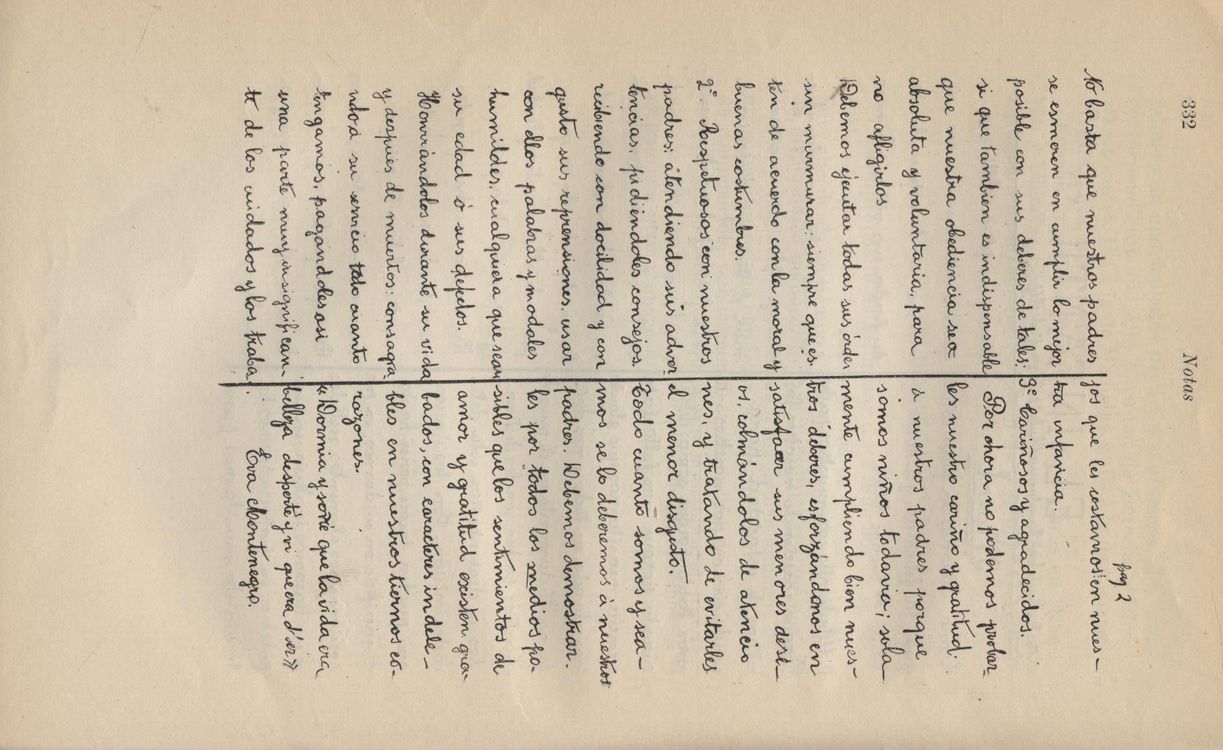 332
Notas
pag 2
No basta que nuestros padres
se esmeren en cumplir lo mejor
posible con sus deberes de tales:
si que tambien es indispensable
que nuestra obediencia sea
absoluta y voluntaria, para
no afligirlos
Debemos ejecutar todas sus órde
sin murmurar: siempre que es
tén de acuerdo con la moral y
buenas costumbres.
2º. Respetuosos con nuestros
padres; atendiendo sus adver
tencias, pidiendoles consejos
recibiendo con docilidad y con
gusto sus reprensiones, usar
con ellos palabras y modales
humildes, cualquiera que sean
su edad ó sus defectos.
Honrándolos durante su vida
y después de muertos: consagra
ndo á su servicio todo cuanto
tengamos, pagándoles asi
una parte muy insignifican-
te de los cuidados y los traba
jos que les costamos en nues-
tra infancia.
3º Cariñosos y agradecidos.
Por ahora no podemos probar-
les nuestro cariño y gratitud
á nuestros padres porque
somos niños todavia; sola
mente cumpliendo bien nues-
tros deberes, esforzándonos en
satisfacer sus menores dese-
os, colmándolos de atencio
nes, y tratando de evitarles
el menor disgusto.
Todo cuanto somos y sea-
mos se lo deberemos á nuestros
padres. Debemos demostrar.
les por todos los medios po-
sibles que los sentimientos de
amor y gratitud existen gra-
bados, con caracteres indele-
bles en nuestros tiernos co-
razones.
«Dormia y soñé que la vida era
belleza desperté y vi que era d'er»
Eva Montenegro.